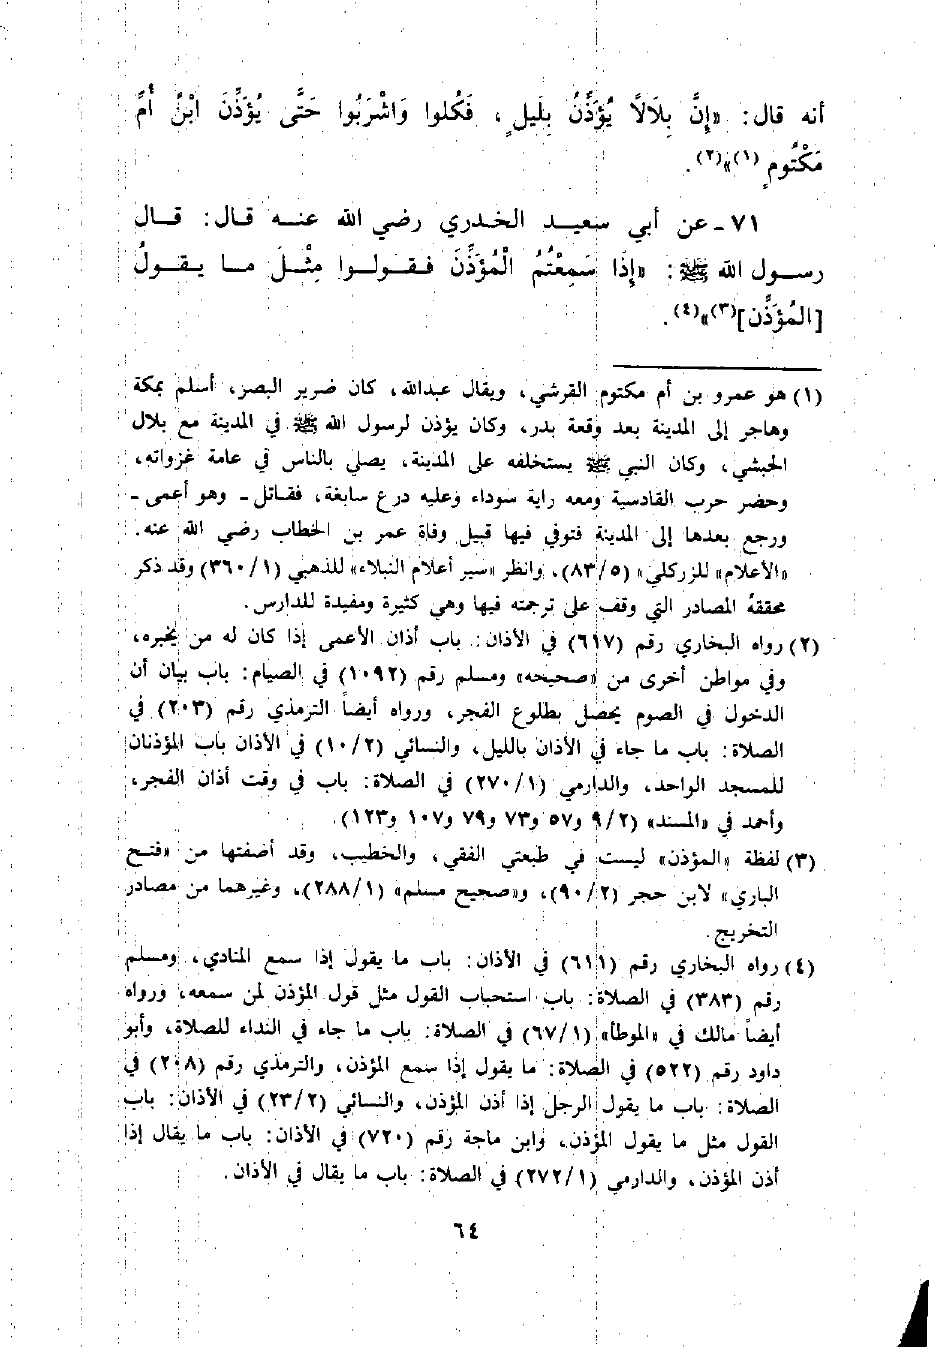 أنه قال: «إِنَّ بِلَالًا يُؤَذِّنُ بِلَيلٍ، فَكُلوا وَاشْرَبُوا حَتَّى يُؤَذِّنَ ابْنُ أُمِّ
مَكْتُومٍ (١)»(٢).
٧١ - عن أبي سعيد الخدري رضي الله عنه قال: قال
رسول الله ﷺ: «إِذَا سَمِعْتُمُ الْمُؤَذِّنَ فقولوا مِثْلَ ما يقولُ
[المُؤَذِّن](٣)»(٤).
(١) هو عمرو بن أم مكتوم القرشي، ويقال عبدالله، كان ضرير البصر، أسلم بمكة
وهاجر إلى المدينة بعد وقعة بدر، وكان يؤذن لرسول الله ﷺ في المدينة مع بلال
الحبشي، وكان النبي ﷺ يستخلفه على المدينة، يصلي بالناس في عامة غزواته،
وحضر حرب القادسية ومعه راية سوداء وعليه درع سابغة، فقاتل - وهو أعمى -
ورجع بعدها إلى المدينة فتوفي فيها قبيل وفاة عمر بن الخطاب رضي الله عنه.
«الأعلام» للزركلي» (٨٣/٥)، وانظر «سير أعلام النبلاء» للذهبي (٣٦٠/١) وقد ذكر
محققهُ المصادر التي وقف على ترجمته فيها وهي كثيرة ومفيدة للدارس.
(٢) رواه البخاري رقم (٦١٧) في الأذان: باب أذان الأعمى إذا كان له من يخبره،
وفي مواطن أخرى من «صحيحه» ومسلم رقم (١٠٩٢) في الصيام: باب بيان أن
الدخول في الصوم يحصل بطلوع الفجر، ورواه أيضاً الترمذي رقم (٢٠٣) في
الصلاة: باب ما جاء في الأذان بالليل، والنسائي (١٠/٢) في الأذان باب المؤذنان
للمسجد الواحد، والدارمي (٢٧٠/١) في الصلاة: باب في وقت أذان الفجر،
وأحمد في «المسند» (٩/٢ و٥٧ و٧٣ و٧٩ و١٠٧ و١٢٣).
(٣) لفظة «المؤذن» ليست في طبعتي الفقي، والخطيب، وقد أضفتها من «فتح
الباري» لابن حجر (٩٠/٢)، و«صحيح مسلم» (٢٨٨/١)، وغيرهما من مصادر
التخريج.
(٤) رواه البخاري رقم (٦١١) في الأذان: باب ما يقول إذا سمع المنادي، ومسلم
رقم (٣٨٣) في الصلاة: باب استحباب القول مثل قول المؤذن لمن سمعه، ورواه
أيضاً مالك في «الموطأ» (٦٧/١) في الصلاة: باب ما جاء في النداء للصلاة، وأبو
داود رقم (٥٢٢) في الصلاة: ما يقول إذا سمع المؤذن، والترمذي رقم (٢٠٨) في
الصلاة: باب ما يقول الرجل إذا أذن المؤذن، والنسائي (٢٣/٢) في الأذان: باب
القول مثل ما يقول المؤذن، وابن ماجة رقم (٧٢٠) في الأذان: باب ما يقال إذا
أذن المؤذن، والدارمي (٢٧٢/١) في الصلاة: باب ما يقال في الأذان.
٦٤